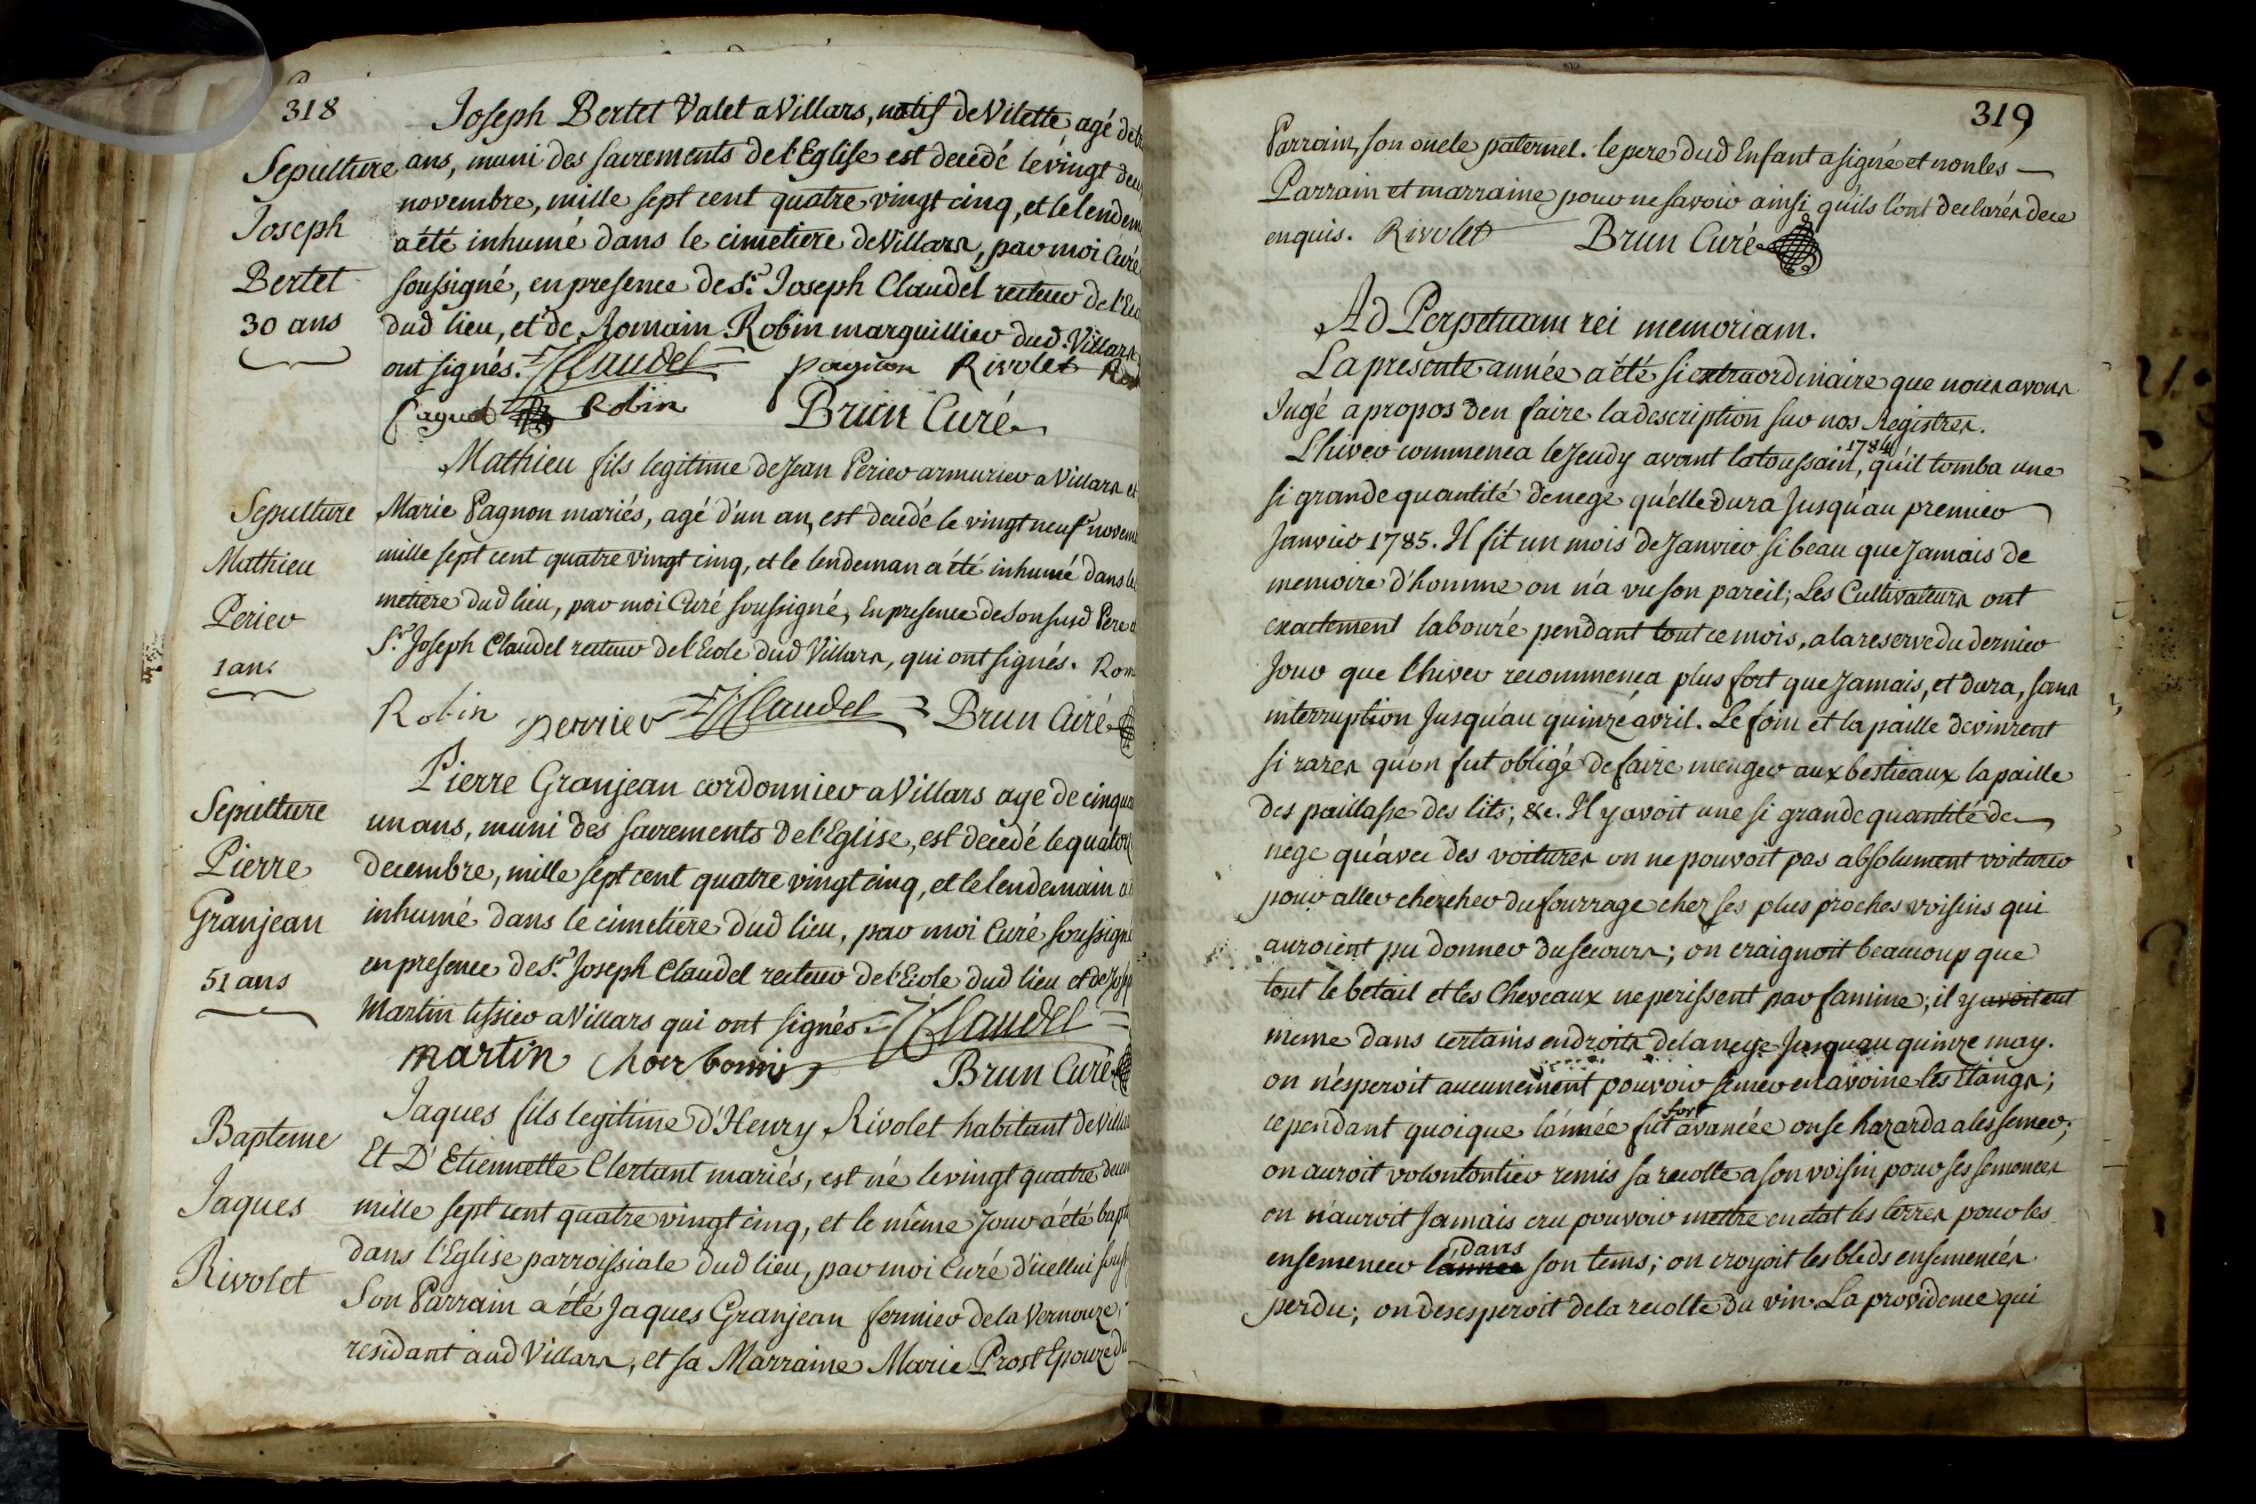 318
Joseph Bertet Valet a Villars, natif de Vilette, agé de
Sepulture
Joseph
Bertet
30 ans
ans, muni des sacrements de l'Eglise est decedé le vingt
novembre, mille sept cent quatre vingt cinq, et le
a été inhumé dans le cimetiere de Villars, par moi Curé
soussigné, en presence de Sr. Joseph Claudel recteur de
dud lieu, et de Romain Robin marguillier dud. Villars
ont signés. Claudel pagnon Rivolet
Robin Brun Curé
Sepulture
Mathieu
Perier
1 an.
Mathieu fils legitime de Jean Perier armurier a Villars et
Marie Pagnon mariés, agé d'un an, est decedé le vingt neuf
mille sept cent quatre vingt cinq, et le lendeman a été inhumé dans
metiere dud lieu, par moi Curé soussigné, En presence de Son susd Pere
Sr. Joseph Claudel recteur de l'Ecole dud Villars, qui ont signés.
Robin perrier Claudel Brun Curé
Sepulture
Pierre
Granjean
51 ans
Pierre Granjean cordonnier a Villars age de
un ans, muni des sacrements de l'Eglise, est decedé le
decembre, mille sept cent quatre vingt cinq, et le lendemain
inhumé dans le cimetiere dud lieu, par moi Curé
en presence de Sr. Joseph Claudel recteur de l'Ecole dud lieu et de
Martin tissier a Villars qui ont signés. Claudel
martin Brun Curé
Bapteme
Jaques
Rivolet
Jaques fils legitime d'Henry Rivolet habitant de
Et D'Etiennette Clertant mariés, est né le vingt quatre
mille sept cent quatre vingt cinq, et le même Jour a été
dans l'Eglise parroissiale dud lieu, par moi Curé d'icellui
Son Parrain a été Jaques Granjean fermier de la Vernouze,
residant aud Villars, et sa Marraine Marie Prost Epouze
319
Parrain, son oncle paternel. le pere dud Enfant a signé et non les
Parrain et marraine pour ne savoir ainsi qu'ils l'ont declarés de ce
enquis. Rivolet Brun Curé
Ad Perpetuam rei memoriam.
La presente année a été si extraordinaire que nous avons
Jugé a propos d'en faire la description sur nos Registres.
L'hiver commenca le Jeudy avant la toussain 1784, qu'il tomba une
si grande quantité de nege qu'elle dura Jusqu'au premier
Janvier 1785. Il fit un mois de Janvier si beau que Jamais de
memoire d'homme on n'a vu son pareil; Les Cultivateurs ont
exactement labouré pendant tout ce mois, a la reserve du dernier
Jour que l'hiver recommença plus fort que Jamais, et dura, sans
interruption Jusqu'au quinze avril. Le foin et la paille devinrent
si rares qu'on fut obligé de faire menger aux bestieaux la paille
des paillasse des lits; &c. Il y avoit une si grande quantité de
nege qu'avec des voitures on ne pouvoit pas absolument voiturer
pour aller chercher du fourrage cher ses plus proches voisins qui
auroient pu donner du secours; on craignoit beaucoup que
tout le betail et les Cheveaux ne perissent par famine; il y avoit eut
meme dans certains endroits de la nege Jusquau quinze may.
on n'esperoit aucunement pouvoir semer en avoine les Etangs;
cependant quoique l'année fut fort avancée on se hazarda a les semer;
on auroit volontontier remis sa recolte a son voisin pour ses semences
on n'auroit Jamais cru pouvoir mettre en etat les terres pour les
ensemencer l'année dans son tems; on croyoit les bleds ensemencés
perdu; on desesperoit de la recolte du vin. La providence qui